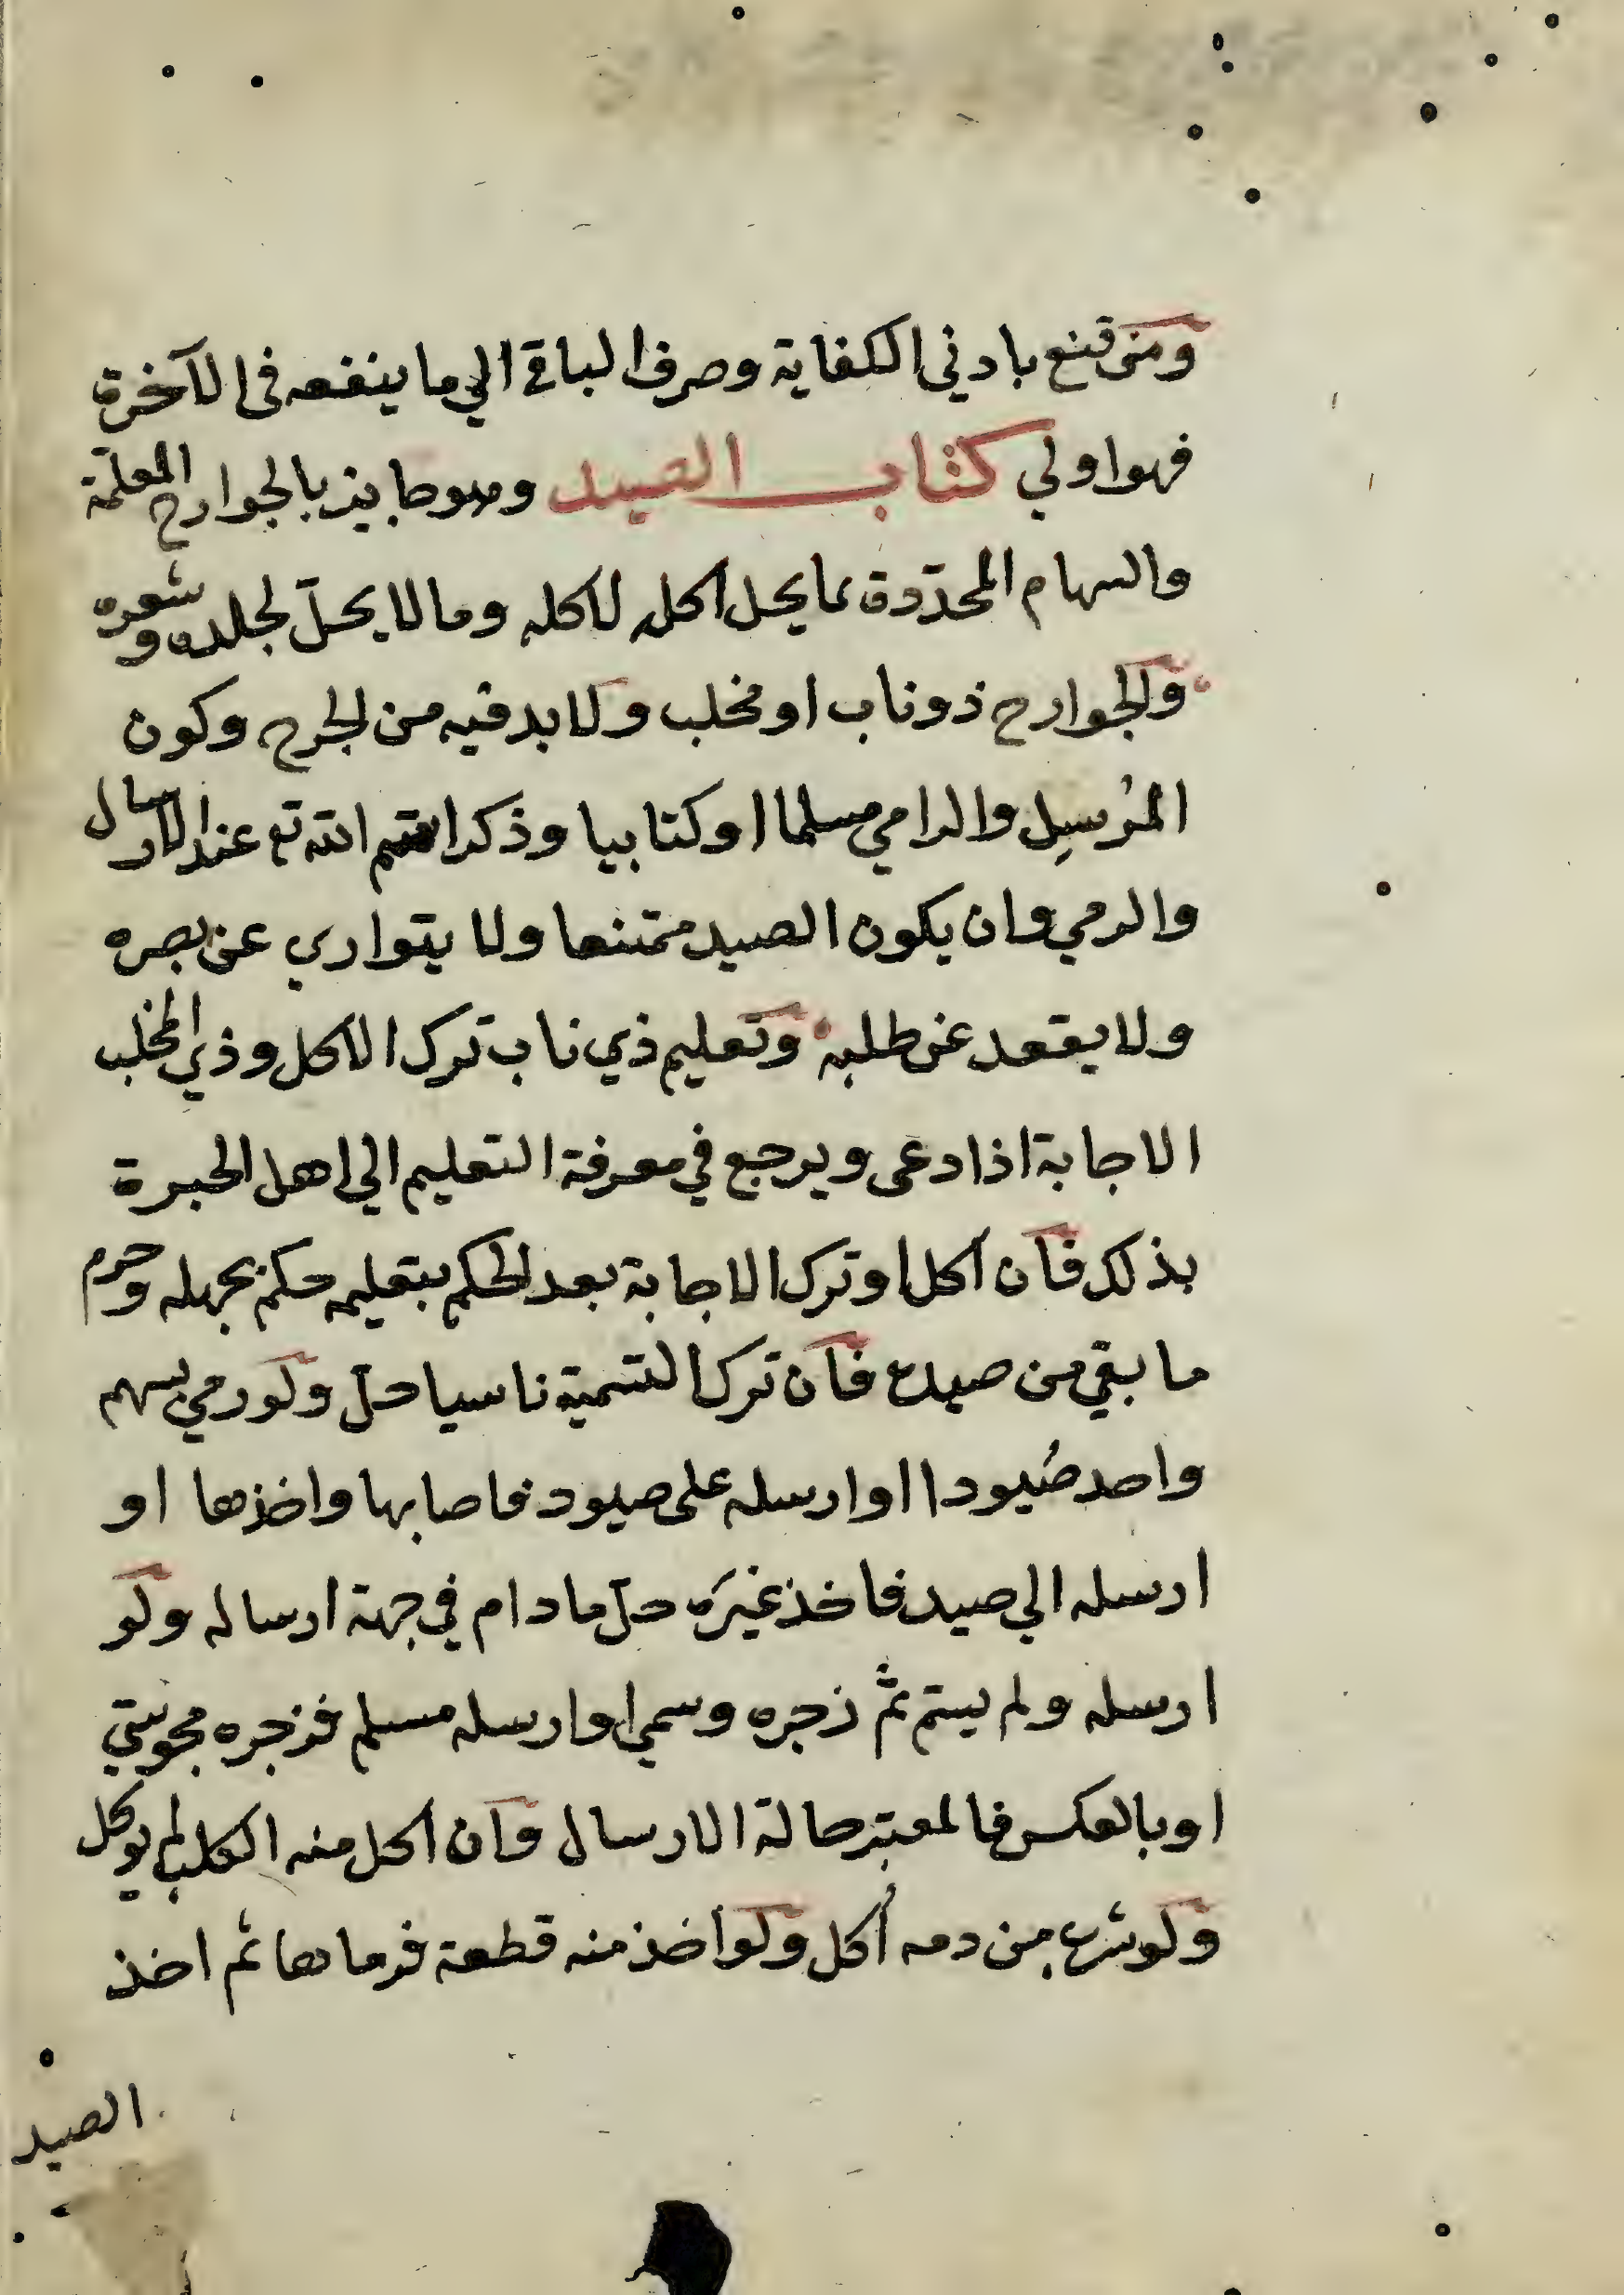 ومن قنع بادني الكفاية وصرف الباقي الي ما ينفعه في الآخرة
فهوا ولي كتاب الصيد وهو جايز بالجوارح المعلّمة
والسهام المحدّدة بما يحل اكله لاكله وما لا يحلّ لجلده وشعره
والجوارح ذو ناب او مخلب ولا بد فيه من الجرح وكون
المُرسِل والرامي مسلما او كتابيا وذكر اسم الله تع عند الارسال
والرمي وان يكون الصيد ممتنعا ولا يتواري عن بصره
ولا يقعد عن طلبه وتعليم ذي ناب ترك الاكل وذي المخلب
الاجابة اذا دعى ويرجع في معرفة التعليم الي اهل الخبرة
بذلك فان اكل او ترك الاجابة بعد الحكم بتعليمه حكم بجهله وحرم
ما بقي من صيده فان ترك التسمية ناسيا حلّ ولو رمي بسهم
واحد صُيودا او ارسله على صيود فاصابها واخذها او
ارسله الي صيد فاخذ غيرَه حلّ ما دام في جهة ارساله ولو
ارسله ولم يسمّ ثمّ زجره وسمي او ارسله مسلم فزجره مجوسيّ
او بالعكس فالمعتبر حالة الارسال وان اكل منه الكلب لم يوكل
ولو شرب من دمه اُكل ولو اخذ منه قطعة فرماها ثم اخذ
الصيد